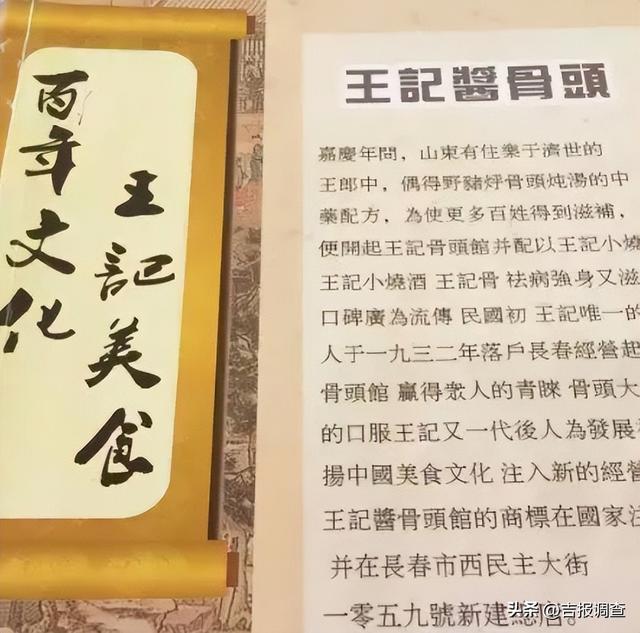 百年文化
王記美食
王記醬骨頭
嘉慶年問，山東有住樂于濟世的
王郎中，偶得野豬烀骨頭炖湯的中
藥配方，為使更多百姓得到滋補，
便開起王記骨頭館并配以王記小燒
王記小燒酒 王記骨 祛病強身又滋
口碑廣為流傳 民國初 王記唯一的
人于一九三二年落戶長春經營起
骨頭館 贏得衆人的青睞 骨頭大
的口服王記又一代後人為發展
揚中國美食文化 注入新的經營
王記醬骨頭館的商標在國家注
并在長春市西民主大街
一零五九號新建總店。
头条 @吉报调查